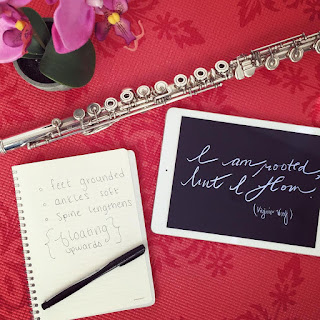 feet grounded
ankles soft
spine lengthens
{floating}
upwards
I am rooted,
but I flow.
(Virginia Woolf)